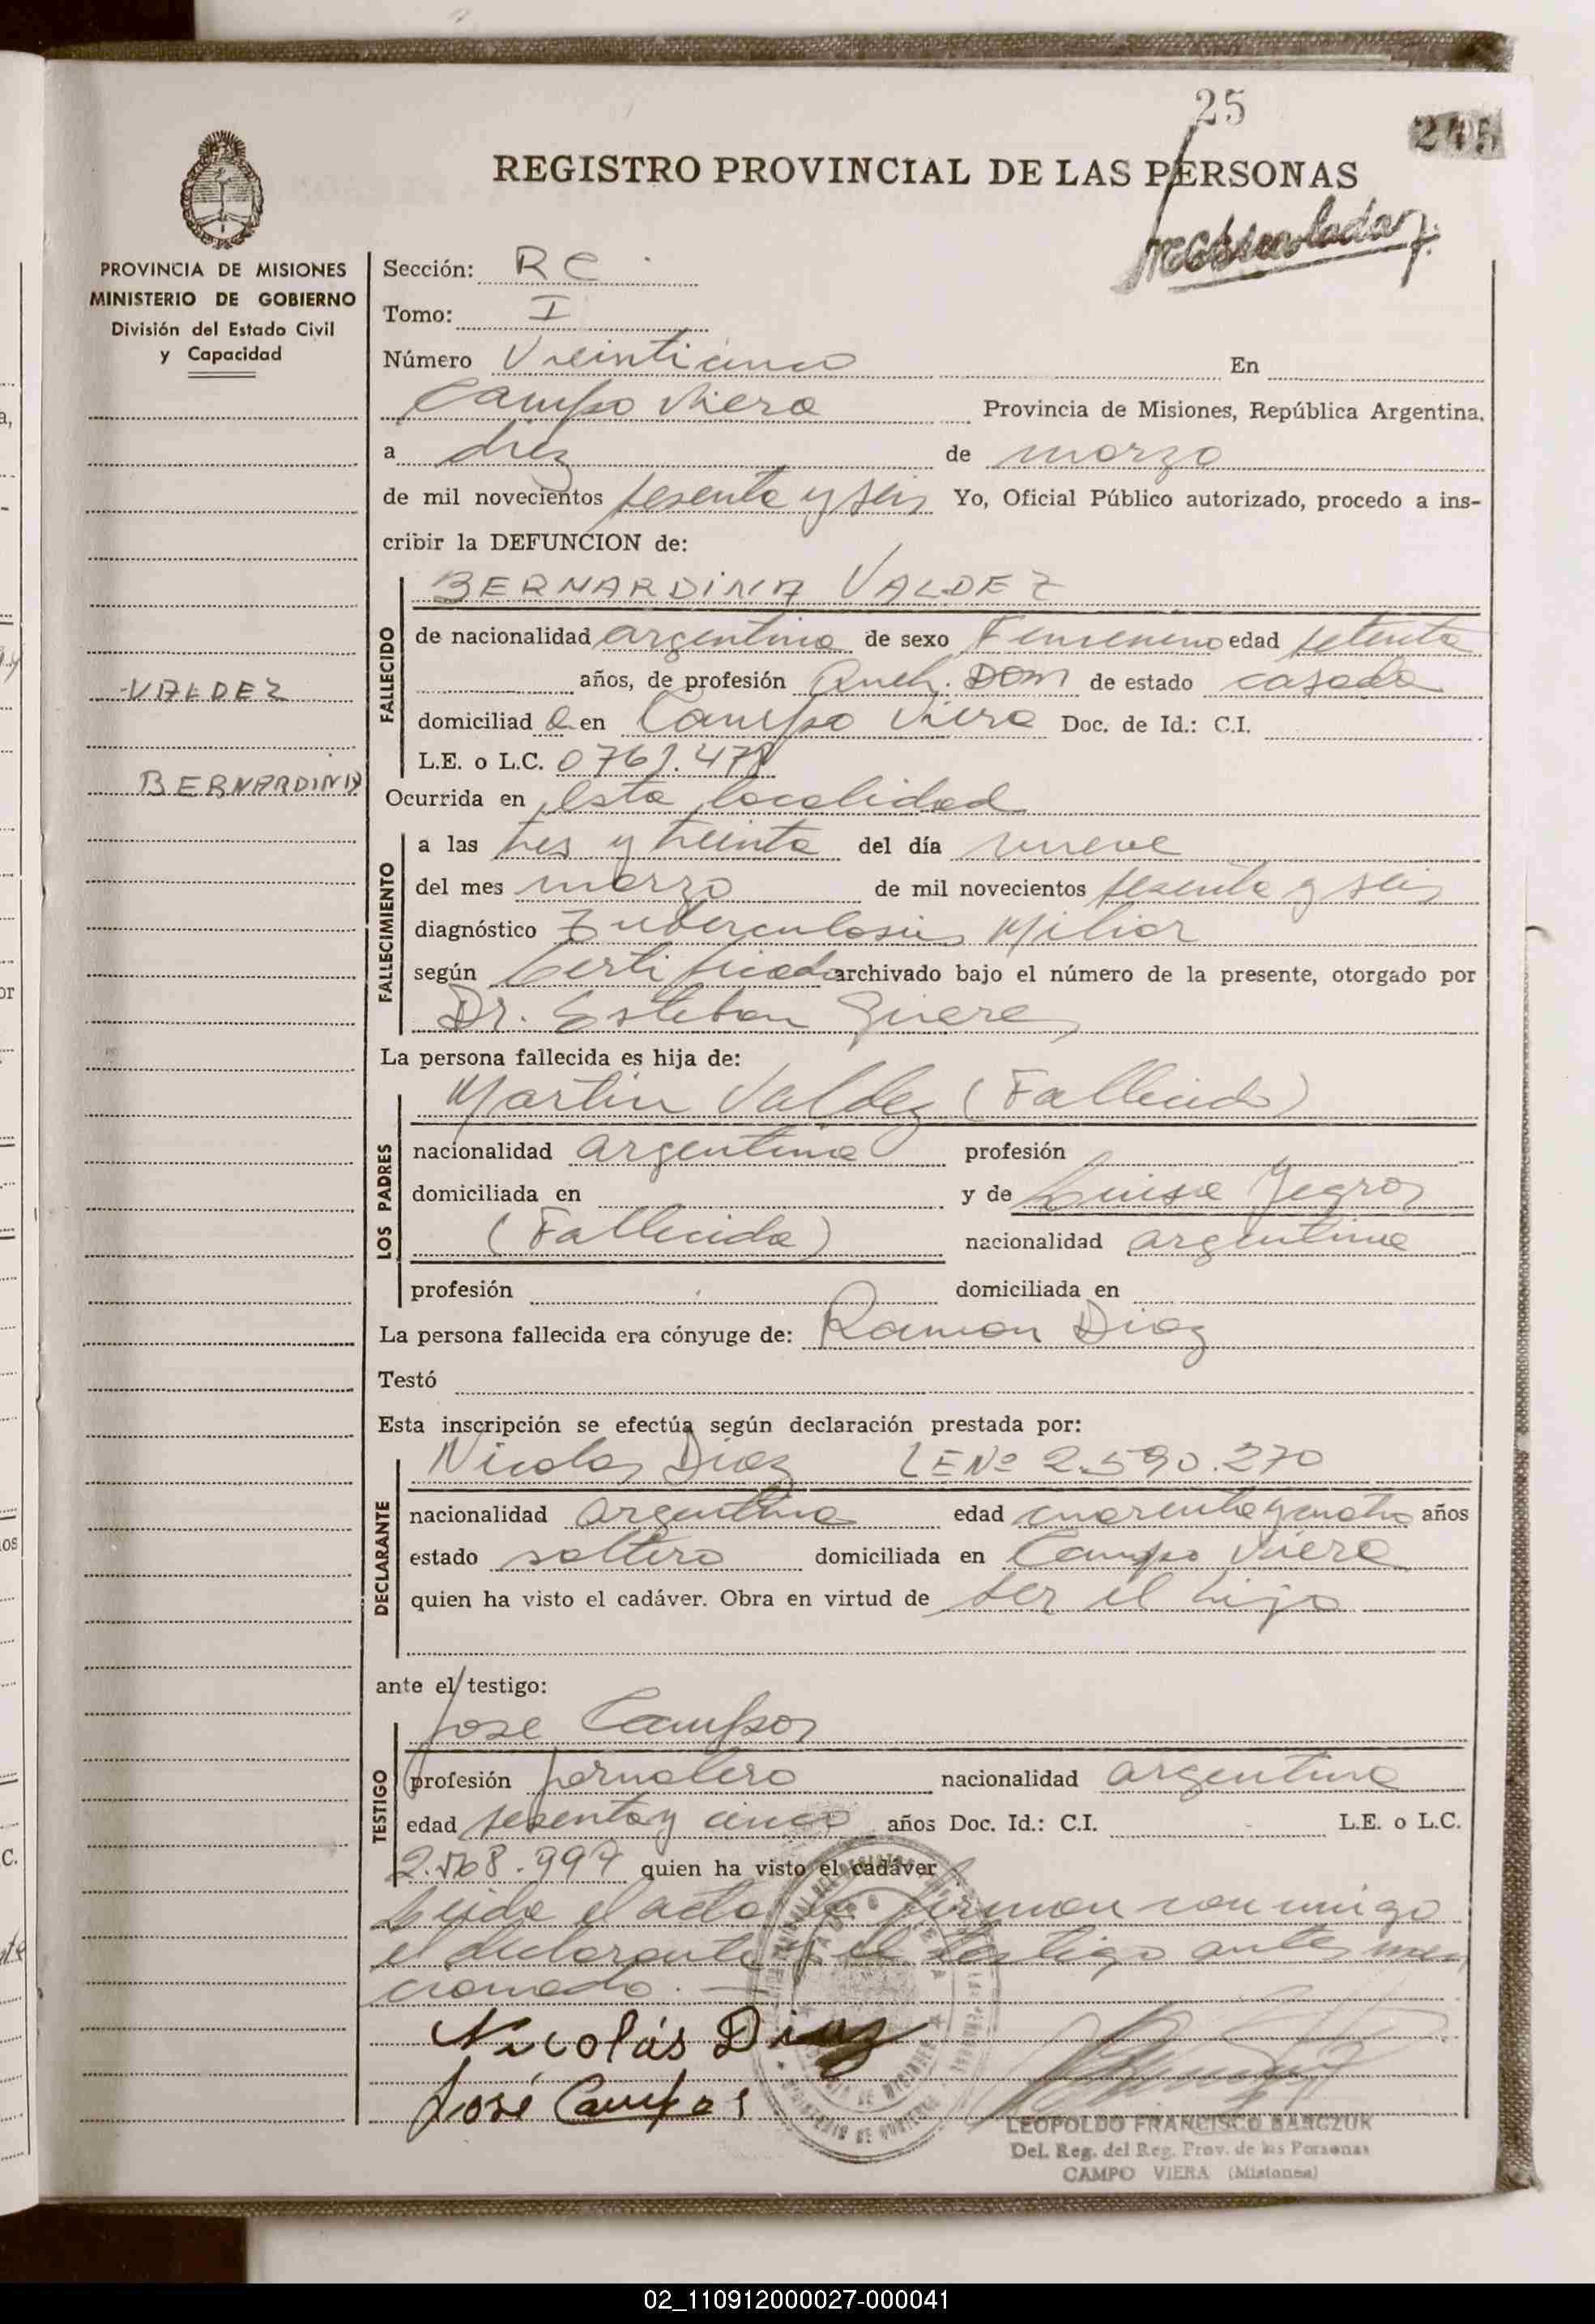 25
REGISTRO PROVINCIAL DE LAS PERSONAS
PROVINCIA DE MISIONES
MINISTERIO DE GOBIERNO
División del Estado Civil
y Capacidad
VALDEZ
BERNARDINA
Sección: RC
Tomo: I
Número Veinticinco En
Campo Viera Provincia de Misiones, República Argentina.
a diez de marzo
de mil novecientos sesenta y seis Yo, Oficial Público autorizado, procedo a ins-
cribir la DEFUNCION de:
FALLECIDO
BERNARDINA VALDEZ
de nacionalidad argentina de sexo Femenino edad setenta
años, de profesión Queh. DOM de estado casada
domiciliad a en Campo Viera Doc. de Id.: C.I.
L.E. o L.C.
Ocurrida en esta localidad
FALLECIMIENTO
a las tres y treinta del día nueve
del mes marzo de mil novecientos sesenta y seis
diagnóstico Tuberculosis Miliar
según Certificado archivado bajo el número de la presente, otorgado por
Dr. Esteban
La persona fallecida es hija de:
LOS PADRES
Martin Valdez (Fallecido)
nacionalidad argentina profesión
domiciliada en y de Luisa Yegros
(Fallecida) nacionalidad argentina
profesión domiciliada en
La persona fallecida era cónyuge de: Ramon Diaz
Testó
Esta inscripción se efectúa según declaración prestada por:
DECLARANTE
Nicolas Diaz LE Nº 2.590.270
nacionalidad argentina edad cuarenta y cuatro años
estado soltero domiciliada en Campo Viera
quien ha visto el cadáver. Obra en virtud de ser el hijo
ante el testigo:
TESTIGO
Jose Campos
profesión jornalero nacionalidad argentina
edad sesenta y cinco años Doc. Id.: C.I. L.E. o L.C.
quien ha visto el cadáver
Leida el acta la firman conmigo
el declarante y el testigo antes men
cionado. —
Nicolás Diaz
José Campos
LEOPOLDO FRANCISCO BANCZUK
Del. Reg. del Reg. Prov. de las Personas
CAMPO VIERA (Misiones)
02_110912000027-000041